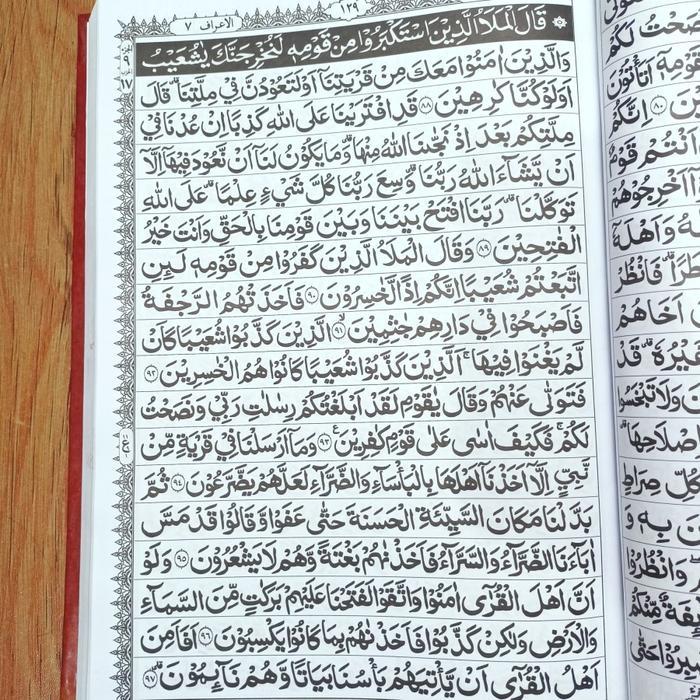 الاعراف ٧
١٢٩
قَالَ الْمَلَاُ الَّذِيْنَ اسْتَكْبَرُوْا مِنْ قَوْمِهٖ لَنُخْرِجَنَّكَ يٰشُعَيْبُ
وَالَّذِيْنَ اٰمَنُوْا مَعَكَ مِنْ قَرْيَتِنَاۤ اَوْ لَتَعُوْدُنَّ فِيْ مِلَّتِنَا ؕ قَالَ
اَوَلَوْ كُنَّا كٰرِهِيْنَ ﴿٨٨﴾ قَدِ افْتَرَيْنَا عَلَى اللّٰهِ كَذِبًا اِنْ عُدْنَا فِيْ
مِلَّتِكُمْ بَعْدَ اِذْ نَجّٰىنَا اللّٰهُ مِنْهَا ؕ وَمَا يَكُوْنُ لَنَاۤ اَنْ نَّعُوْدَ فِيْهَاۤ اِلَّاۤ
اَنْ يَّشَآءَ اللّٰهُ رَبُّنَا ؕ وَسِعَ رَبُّنَا كُلَّ شَيْءٍ عِلْمًا ؕ عَلَى اللّٰهِ
تَوَكَّلْنَا ؕ رَبَّنَا افْتَحْ بَيْنَنَا وَبَيْنَ قَوْمِنَا بِالْحَقِّ وَاَنْتَ خَيْرُ
الْفٰتِحِيْنَ ﴿٨٩﴾ وَقَالَ الْمَلَاُ الَّذِيْنَ كَفَرُوْا مِنْ قَوْمِهٖ لَئِنِ
اتَّبَعْتُمْ شُعَيْبًا اِنَّكُمْ اِذًا لَّخٰسِرُوْنَ ﴿٩٠﴾ فَاَخَذَتْهُمُ الرَّجْفَةُ
فَاَصْبَحُوْا فِيْ دَارِهِمْ جٰثِمِيْنَ ﴿٩١﴾ الَّذِيْنَ كَذَّبُوْا شُعَيْبًا كَاَنْ
لَّمْ يَغْنَوْا فِيْهَا ۚ اَلَّذِيْنَ كَذَّبُوْا شُعَيْبًا كَانُوْا هُمُ الْخٰسِرِيْنَ ﴿٩٢﴾
فَتَوَلّٰى عَنْهُمْ وَقَالَ يٰقَوْمِ لَقَدْ اَبْلَغْتُكُمْ رِسٰلٰتِ رَبِّيْ وَنَصَحْتُ
لَكُمْ ۚ فَكَيْفَ اٰسٰى عَلٰى قَوْمٍ كٰفِرِيْنَ ﴿٩٣﴾ وَمَاۤ اَرْسَلْنَا فِيْ قَرْيَةٍ مِّنْ
نَّبِيٍّ اِلَّاۤ اَخَذْنَاۤ اَهْلَهَا بِالْبَاْسَآءِ وَالضَّرَّآءِ لَعَلَّهُمْ يَضَّرَّعُوْنَ ﴿٩٤﴾ ثُمَّ
بَدَّلْنَا مَكَانَ السَّيِّئَةِ الْحَسَنَةَ حَتّٰى عَفَوْا وَّقَالُوْا قَدْ مَسَّ
اٰبَآءَنَا الضَّرَّآءُ وَالسَّرَّآءُ فَاَخَذْنٰهُمْ بَغْتَةً وَّهُمْ لَا يَشْعُرُوْنَ ﴿٩٥﴾ وَلَوْ
اَنَّ اَهْلَ الْقُرٰۤى اٰمَنُوْا وَاتَّقَوْا لَفَتَحْنَا عَلَيْهِمْ بَرَكٰتٍ مِّنَ السَّمَآءِ
وَالْاَرْضِ وَلٰكِنْ كَذَّبُوْا فَاَخَذْنٰهُمْ بِمَا كَانُوْا يَكْسِبُوْنَ ﴿٩٦﴾ اَفَاَمِنَ
اَهْلُ الْقُرٰۤى اَنْ يَّاْتِيَهُمْ بَاْسُنَا بَيَاتًا وَّهُمْ نَآئِمُوْنَ ﴿٩٧﴾